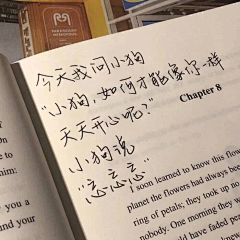 今天我问小狗
“小狗，如何才能像你一样
天天开心呢？”
小狗说
“忘忘忘”
Chapter 8
I soon learned to know this flow
planet the flowers had always bee
ring of petals; they took up no
nobody. One morning they w
would have faded pe
to
him:
you a
und your